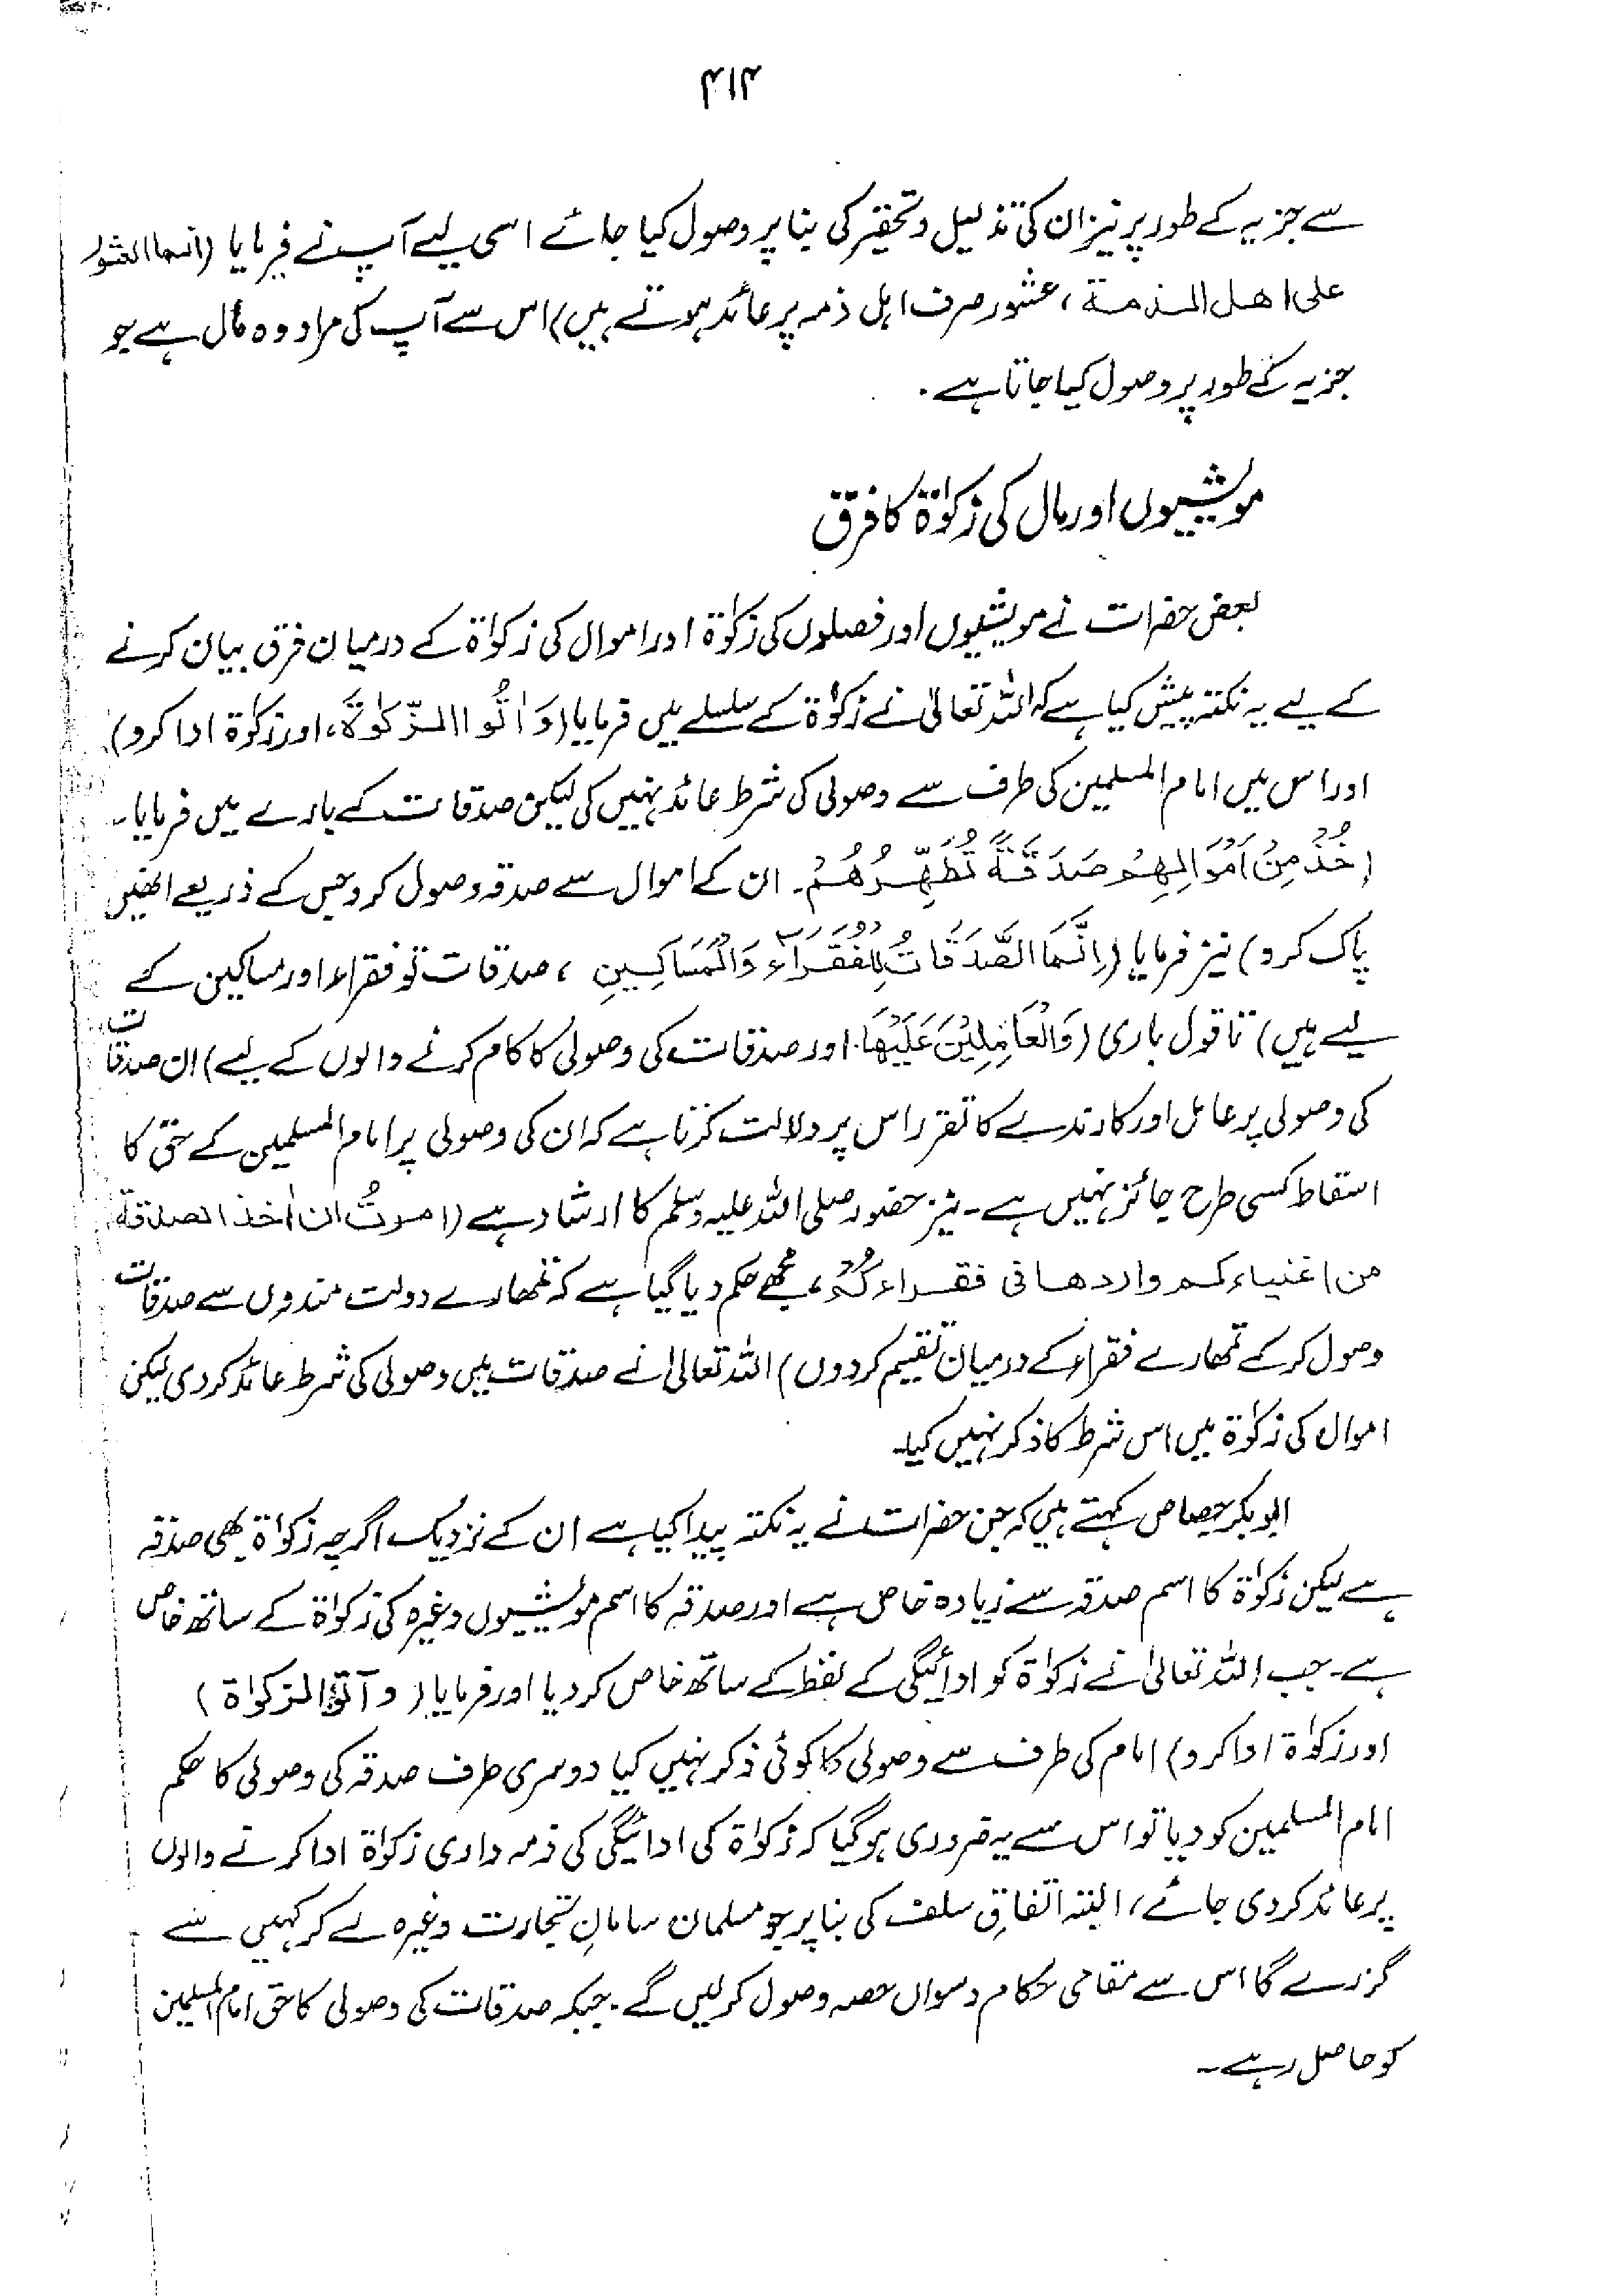 ۴۱۴
سے جزیہ کے طور پر نیز ان کی تذلیل و تحقیر کی بنا پر وصول کیا جائے اسی لیے آپ نے فرمایا (انما العشور
علی اھل الذمۃ، عشور صرف اہل ذمہ پر عائد ہوتے ہیں) اس سے آپ کی مراد وہ مال ہے جو
جزیہ کے طور پر وصول کیا جاتا ہے۔
مویشیوں اور مال کی زکوٰۃ کا فرق
بعض حضرات نے مویشیوں اور فصلوں کی زکوٰۃ اور اموال کی زکوٰۃ کے درمیان فرق بیان کرنے
کے لیے یہ نکتہ پیش کیا ہے کہ اللہ تعالیٰ نے زکوٰۃ کے سلسلے میں فرمایا (وَاٰتُوا الزَّکٰوۃَ، اور زکوٰۃ ادا کرو)
اور اس میں امام المسلمین کی طرف سے وصولی کی شرط عائد نہیں کی لیکن صدقات کے بارے میں فرمایا۔
(خُذْ مِنْ اَمْوَالِهِمْ صَدَقَةً تُطَهِّرُهُمْ۔ ان کے اموال سے صدقہ وصول کرو جس کے ذریعے انھیں
پاک کرو) نیز فرمایا (اِنَّمَا الصَّدَقَاتُ لِلْفُقَرَآءِ وَالْمَسَاكِيْنِ ، صدقات تو فقراء اور مساکین کے
لیے ہیں) تا قول باری (وَالْعَامِلِيْنَ عَلَيْهَا۔ اور صدقات کی وصولی کا کام کرنے والوں کے لیے) ان صدقات
کی وصولی پر عامل اور کارندے کا تقرر اس پر دلالت کرتا ہے کہ ان کی وصولی پر امام المسلمین کے حق کا
اسقاط کسی طرح جائز نہیں ہے۔ نیز حضور صلی اللہ علیہ وسلم کا ارشاد ہے (امرتُ ان اٰخذ الصدقۃ
من اغنیاء کم واردھا فی فقراء کُمْ، مجھے حکم دیا گیا ہے کہ تمھارے دولت مندوں سے صدقات
وصول کر کے تمھارے فقراء کے درمیان تقسیم کر دوں) اللہ تعالیٰ نے صدقات میں وصولی کی شرط عائد کر دی لیکن
اموال کی زکوٰۃ میں اس شرط کا ذکر نہیں کیا۔
ابوبکر جصاص کہتے ہیں کہ جن حضرات نے یہ نکتہ پیدا کیا ہے ان کے نزدیک اگرچہ زکوٰۃ بھی صدقہ
ہے لیکن زکوٰۃ کا اسم صدقہ سے زیادہ خاص ہے اور صدقہ کا اسم مویشیوں وغیرہ کی زکوٰۃ کے ساتھ خاص
ہے۔ جب اللہ تعالیٰ نے زکوٰۃ کو ادائیگی کے لفظ کے ساتھ خاص کر دیا اور فرمایا (و آتوا الزکوٰۃ)
اور زکوٰۃ ادا کرو) امام کی طرف سے وصولی کا کوئی ذکر نہیں کیا دوسری طرف صدقہ کی وصولی کا حکم
امام المسلمین کو دیا تو اس سے یہ ضروری ہو گیا کہ زکوٰۃ کی ادائیگی کی ذمہ داری زکوٰۃ ادا کرنے والوں
پر عائد کر دی جائے، البتہ اتفاقِ سلف کی بنا پر جو مسلمان سامانِ تجارت وغیرہ لے کر کہیں سے
گزرے گا اس سے مقامی حکام دسواں حصہ وصول کر لیں گے۔ جبکہ صدقات کی وصولی کا حق امام المسلمین
کو حاصل رہے۔